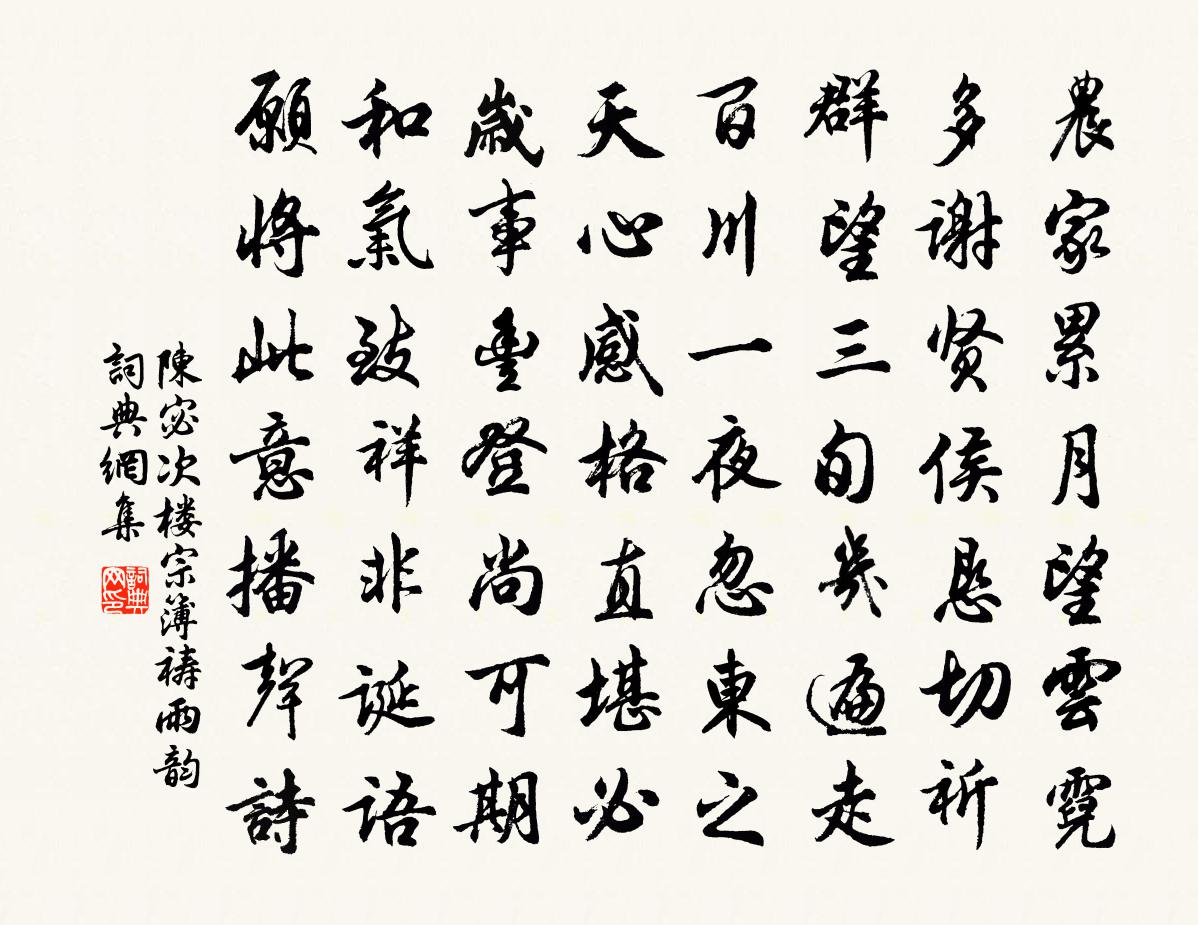 農家累月望雲霓
多謝贤侯恳切祈
群望三旬幾遍走
百川一夜忽東之
天心感格直堪必
歲事豊登尚可期
和氣致祥非诞语
願將此意播聲詩
陳宓次楼宗簿祷雨韵
詞典網集
詞典网印